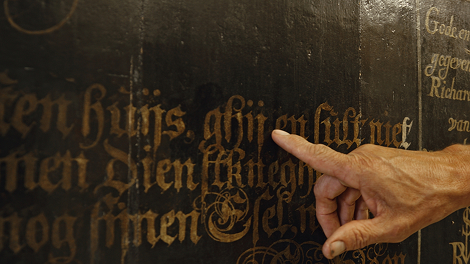 sten hüijs, ghij en sült niet
nen Dienstknegh
nog sinen Esel,
Gode, en
gegeven
Richard
van